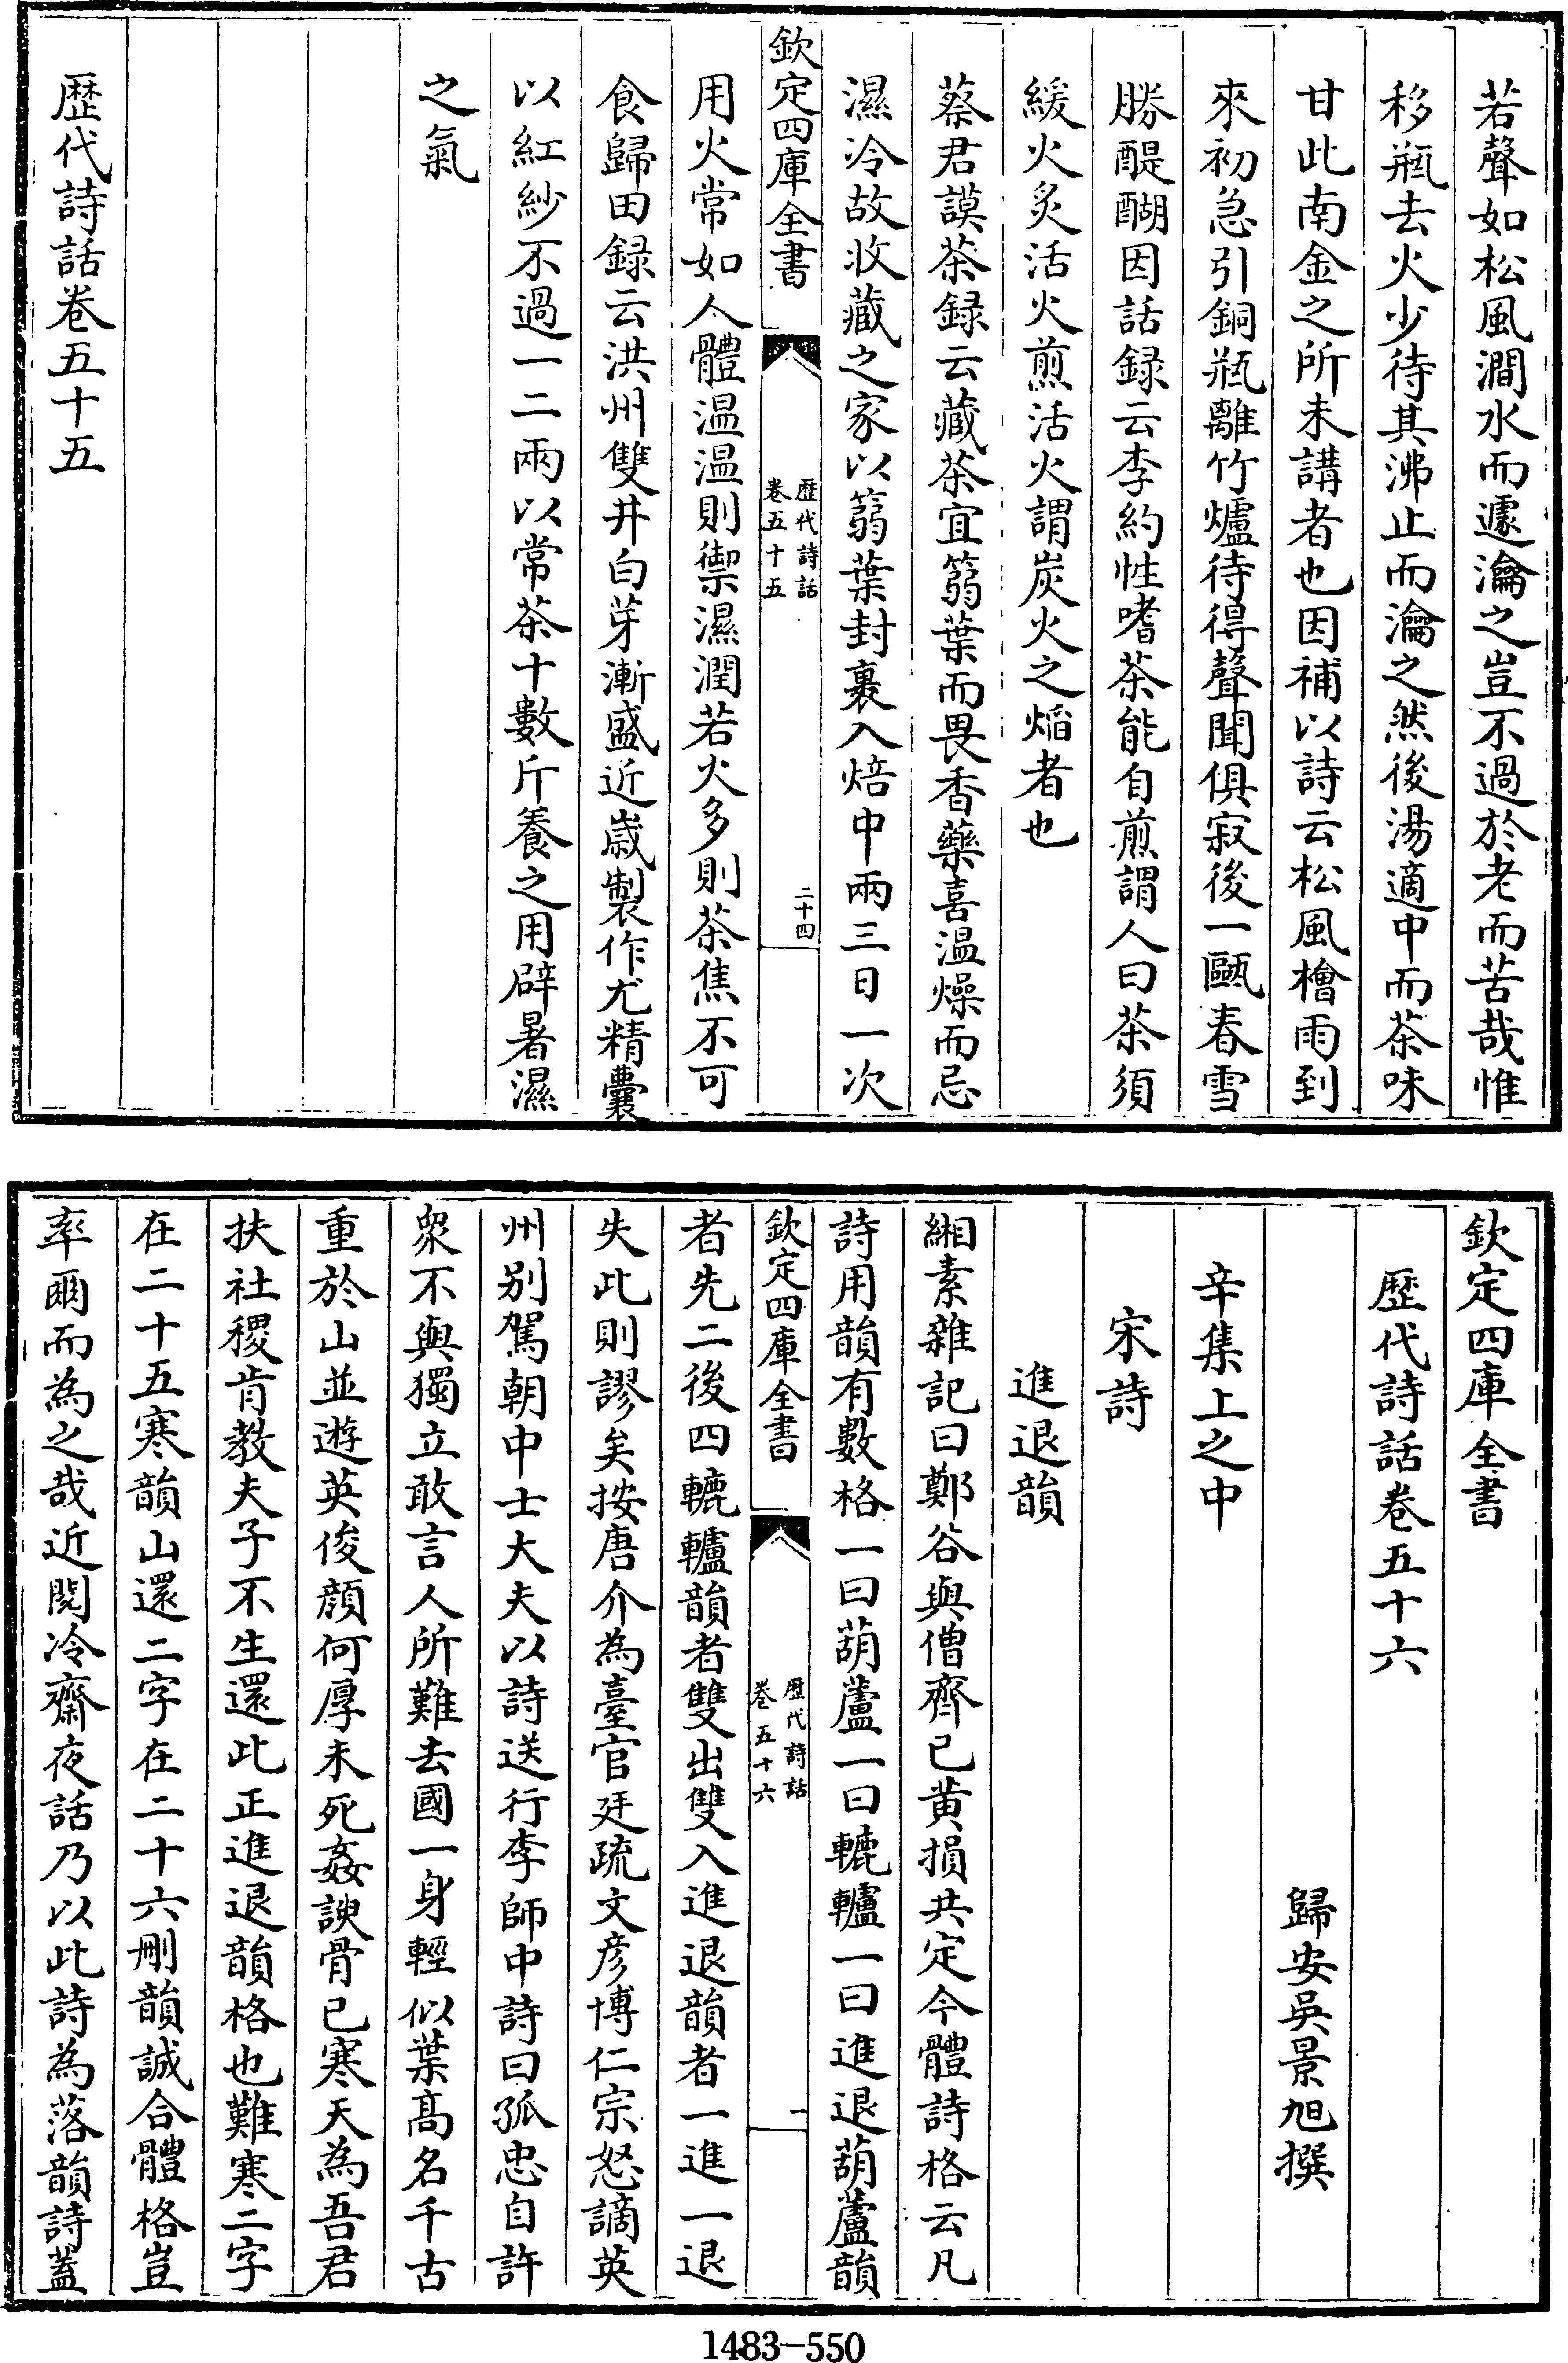 若聲如松風澗水而遽瀹之豈不過於老而苦哉惟
移瓶去火少待其沸止而瀹之然後湯適中而茶味
甘此南金之所未講者也因補以詩云松風檜雨到
來初急引銅瓶離竹爐待得聲聞俱寂後一甌春雪
勝醍醐因話録云李約性嗜茶能自煎謂人曰茶須
緩火炙活火煎活火謂炭火之焰者也
蔡君謨茶録云藏茶宜蒻葉而畏香藥喜溫燥而忌
濕冷故收藏之家以蒻葉封裹入焙中兩三日一次
欽定四庫全書
歴代詩話
卷五十五
二十四
用火常如人體温温則禦濕潤若火多則茶焦不可
食歸田録云洪州雙井白芽漸盛近嵗製作尤精囊
以紅紗不過一二兩以常茶十數斤養之用辟暑濕
之氣
歴代詩話卷五十五
欽定四庫全書
歴代詩話卷五十六
歸安吳景旭撰
辛集上之中
宋詩
進退韻
緗素雜記曰鄭谷與僧齊已黄損共定今體詩格云凡
詩用韻有數格一曰葫蘆一曰轆轤一曰進退葫蘆韻
欽定四庫全書
歴代詩話
卷五十六
一
者先二後四轆轤韻者雙出雙入進退韻者一進一退
失此則謬矣按唐介為臺官廷疏文彦博仁宗怒謫英
州别駕朝中士大夫以詩送行李師中詩曰孤忠自許
衆不與獨立敢言人所難去國一身輕似葉髙名千古
重於山並遊英俊顔何厚未死姦諛骨已寒天為吾君
扶社稷肯教夫子不生還此正進退韻格也難寒二字
在二十五寒韻山還二字在二十六刪韻誠合體格豈
率爾而為之哉近閲冷齋夜話乃以此詩為落韻詩蓋
1483-550